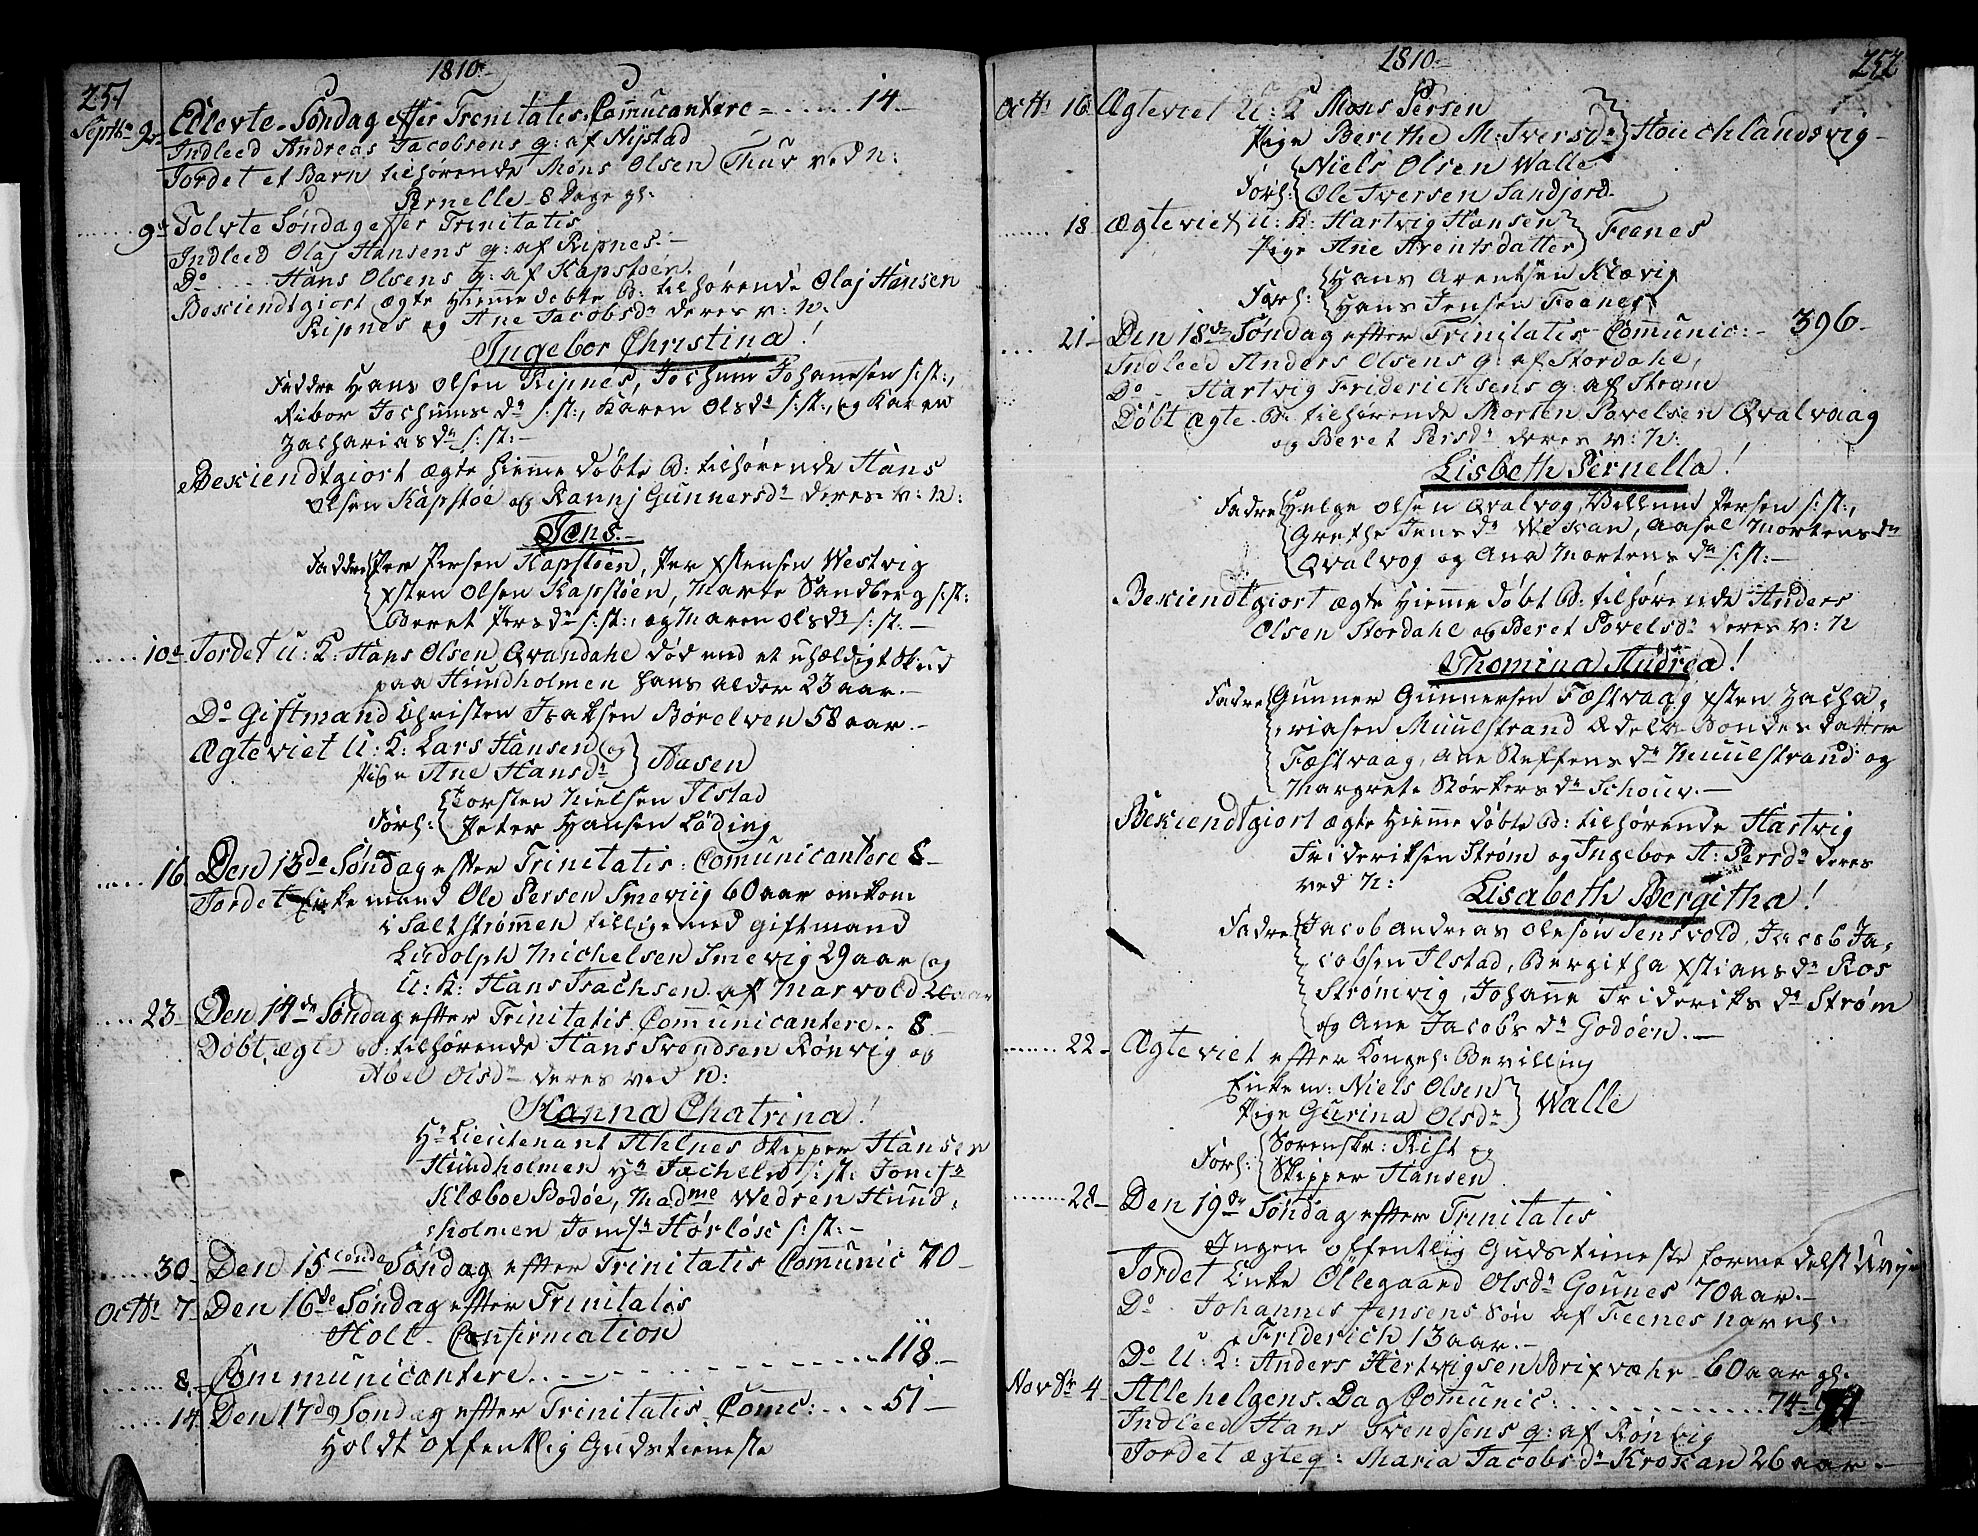 251
1810.
Septbr 2. Ellevte Søndag efter Trinitatis. Comucantere - ...... 14 -
Indleed Andreas Jacobsens q: af Nystad
Jordet et Barn tilhørende Mons Olsen Thuv ved n:
Pernelle 8 Dage gl:
...... 9de Tolvte Søndag efter Trinitatis
Indleed Olaj Hansens q: af Ripnes. -
Do .... Hans Olsens q: af Kapstøen.
Bekiendtgiort ægte Hiemme døbte B: tilhørende Olaj Hansen
Ripnes og Ane Jacobsdr deres v: N:
Ingebor Christina!
Faddre Hans Olsen Ripnes, Jochum Johanesen s: st:,
Ribor Jochumsdr s: st:, Karen Olsdr s: st:, og Karen
Zachariasdr s: st: -
Bekiendtgiort ægte hiemme døbte B: tilhørende Hans
Olsen Kapstøe og Rannj Gunnersdr deres v: n:
Jens. -
Faddre Per Persen Kapstøen, Per Xstensen Westvig
Xsten Olsen Kapstøen, Marte Sandberg s: st:
Beret Persdr s: st:, og Maren Olsdr s: st. -
...... 10de Jordet U: K: Hans Olsen Qvandahl død ved et uhældigt Skud
paa Hundholmen hans alder 23 aar. -
Do Giftmand Christen Isaksen Børelven 58 aar. -
Ægteviet U: K: Lars Hansen og
Pige Ane Hansdr } Aasen
Forl: { Torsten Nielsen Ilstad
Peter Hansen Løding
...... 16 Den 13de Søndag efter Trinitatis: Comunicantere 8 -
Jordet Enkemand Ole Persen Smeviig 60 aar omkom
i Saltstrømmen tilligemed giftmand
Ludolph Michelsen Smevig 29 aar og
U: K: Hans Isachsen af Marvold
.... 23 - Den 14de Søndag efter Trinitatis Communicantere .. 8 -
Døbt ægte B: tilhørende Hans Svendsen Rønvig og
Abel Olsdr deres ved N:
Hanna Chatrina!
Hr Lieutenant Ahlnes Skipper Hansen
Hundholmen Hr Jachelln s: st: Jomfr
Klæboe Bodøe, Madme Wedren Hund-
holmen Jomfr Hørløse s: st: -
...... 30 - Den 15 Søndag efter Trinitatis Comunic 70 -
Octbr 7 - Den 16de Søndag efter Trinitatis
Holt Confirmation
...... 8 - Communicantere. . . - - - - - - - - ... 118. -
.... 14 Den 17de Søndag efter Trinitatis. Comc: . . . 51 -
Holdt offentlig Gudstieneste
1810. -
252
Octbr 16 Ægteviet U: K Mons Persen
Pige Berithe M. Iversdr } Houchlandsvig -
Forl: { Niels Olsen Walle
Ole Iversen Sandjord
....... 18 Ægteviet U: K: Hartvig Hansen
Pige Ane Arentsdatter } Feenes
Forl: { Hans Arentsen Klævig
Hans Jensen Feenes
.... 21 - Den 18de Søndag efter Trinitatis Comunic: - 396 -
Indleed Anders Olsens q: af Stordahl,
Do - Hartvig Friderichsens q: af Strøm
Døbt ægte B: tilhørende Morten Povelsen Qvalvaag
og Beret Persdr deres v: N:
Lisbeth Pernella!
Fadre Helge Olsen Qvalvog, Villum Persen s: st:,
Grethe Jensdr Weskan, Aasel Mortensdr
Qvalvog og Ana Mortensdr s: st: -
Bekiendtgiort ægte Hiemme døbt B: tilhørende Anders
Olsen Stordahl og Beret Povelsdr deres v: N
Thomina Andrea!
Fadre Gunner Gunnersen Fæstvaag Xsten Zacha-
riasen Muulstrand Adela Bondesdatter
Fæstvaag, Ane Steffensdr Muulstrand og
Margrete Størkersdr Schouv. -
Bekiendtgiort ægte Hiemme døbte B: tilhørende Hartvig
Frideriksen Strøm og Ingebor A: Persdr deres
ved N:
Lisabeth Bergitha!
Fadre Jacob Andreas Olesøn Jensvold, Jacob Ja-
cobsen Ilstad, Bergitha Xstiansdr Kos
Strømvig, Johanne Frideriksdr Strøm
og Ane Jacobsdr Godøen. -
....... 22 - Ægteviet efter Kongel: Bevilling
Enkem: Niels Olsen
Pige Gurina Olsdr } Walle
Forl: { Sorenskr: Rist og
Skipper Hansen
....... 28 - Den 19de Søndag efter Trinitatis
Ingen offentlig Gudstieneste formedelst Uveje
Jordet Enke Ollegaard Olsdr Gounes 70 aar. -
Do Johannes Jensens Søn af Feenes navnl:
Friderich 13 aar. -
Do U: K: Anders Hertvigsen Brixvæhr 60 aar gl.
Novbr 4 Allehelgens. Dag Comunic: . . . . . . . . . . . 74 -
Indleed Hans Svendsens q: af Rønvig
Jordet ægteq: Maria Jacobsdr Kroken 26 aar. -